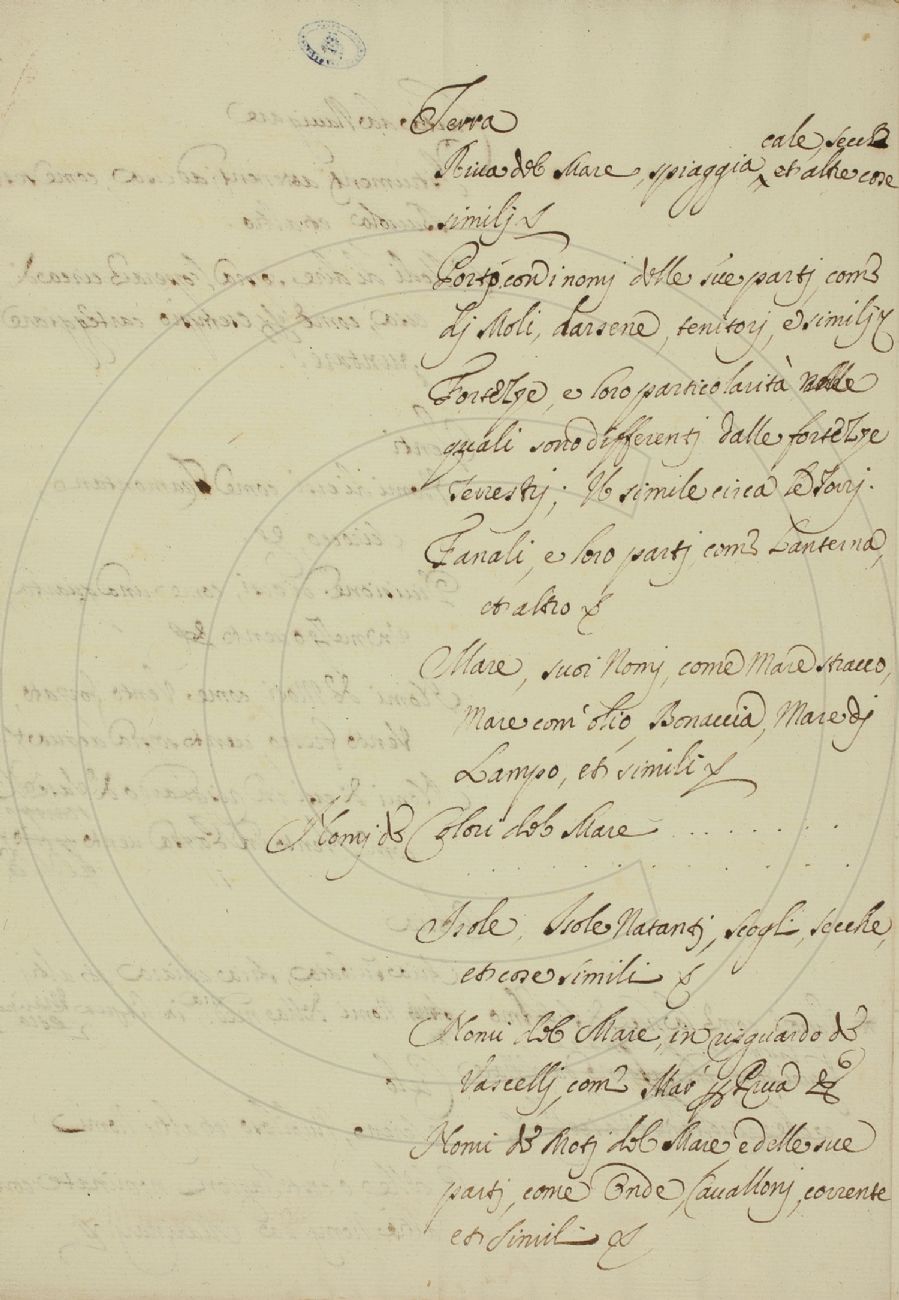 Terra
cale, secche
Riva del Mare, spiaggia, et altre cose
similj
Porto, con i nomj delle sue partj, come
dj Moli, darsene, tenitorj, e similj
Fortezze, e loro particolarità nelle
quali sono differentj dalle fortezze
Terrestrj; Il simile circa le Torrj.
Fanali, e loro partj, come Lanterna,
et altro
Mare, suoi Nomj, come Mare stracco,
Mare com' olio, Bonaccia, Mare dj
Lampo, et simili
Nomj de Colori del Mare . . . . . . .
. . . . . . . . . .
Isole, Isole Natantj, scogli, secche,
et cose simili
Nomi del Mare, in risguardo de
Vascellj, come Mar per Prua &c
Nomi de Motj del Mare e delle sue
partj, come Onde, Cavallonj, corrente
et Simili